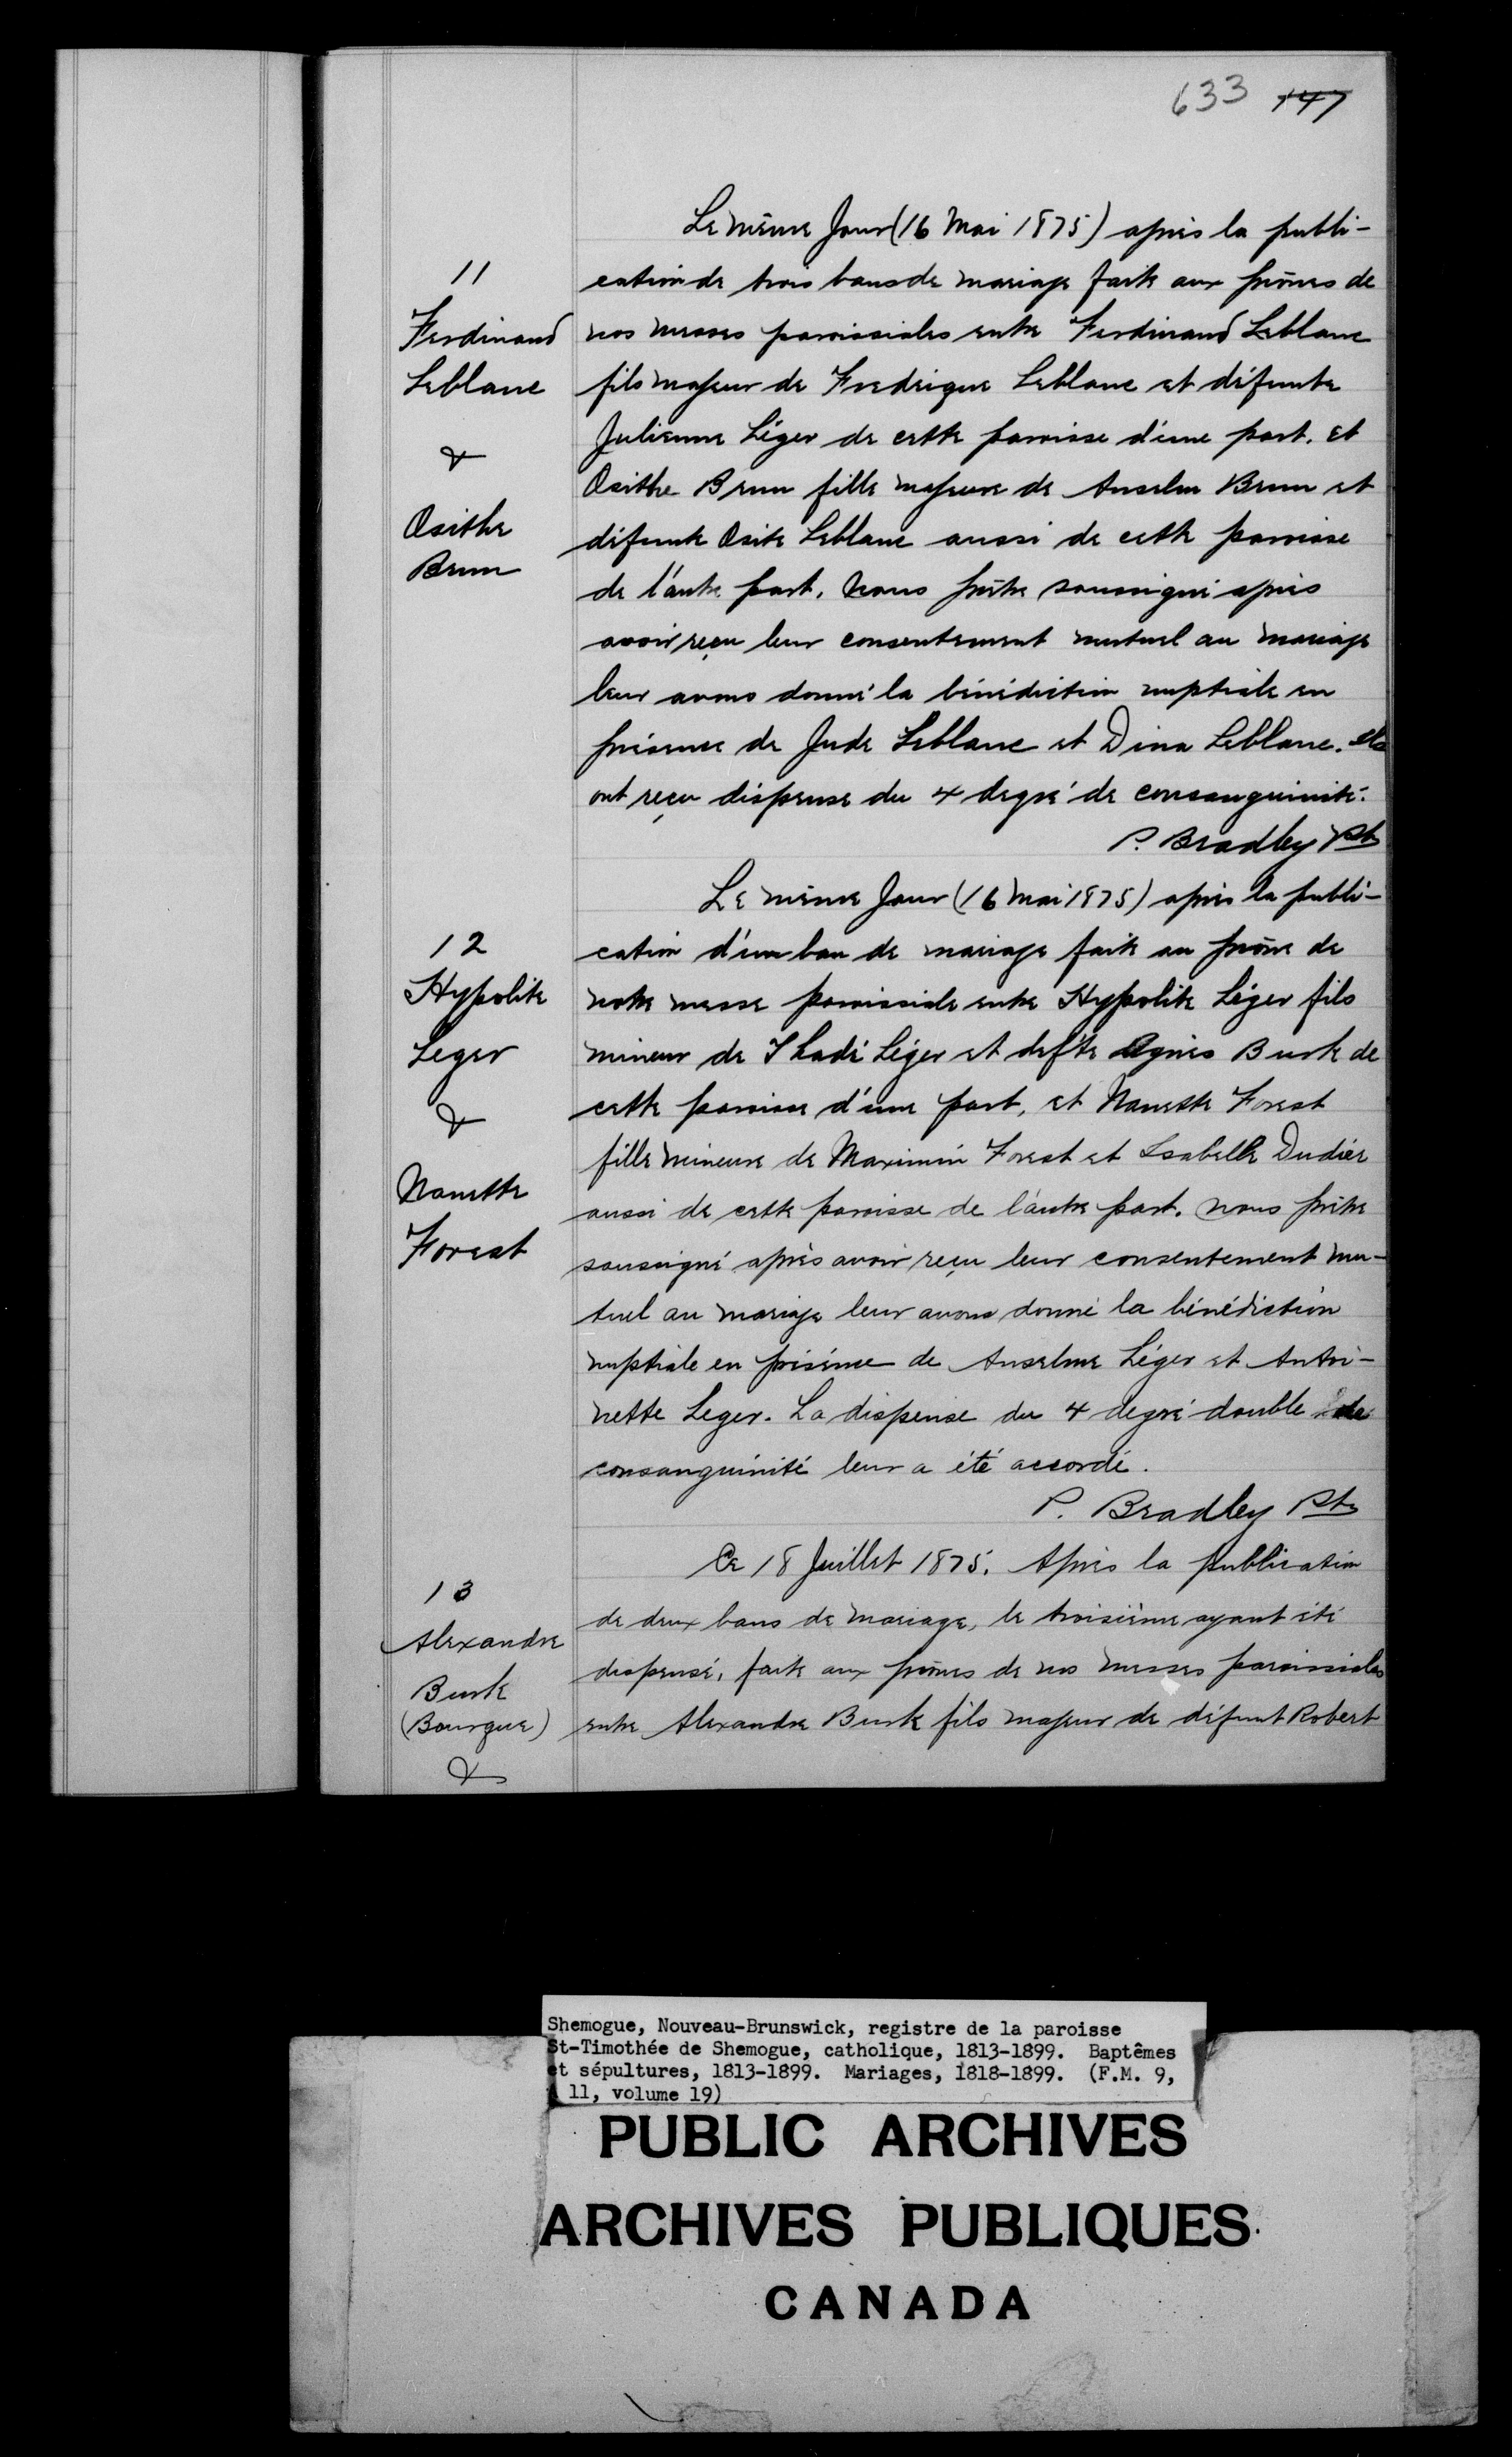 633 147
Le même Jour (16 Mai 1875) après la publi-
cation de trois bans de mariage faite aux prônes de
nos messes paroissiales entre Ferdinand Leblanc
fils majeur de Fredrique Leblanc et défunte
Julienne Léger de cette paroisse d'une part. et
Osithe Brun fille majeure de Anselm Brun et
défunte Osite Leblanc aussi de cette paroisse
de l'autre part. Nous prêtre soussigné après
avoir reçu leur consentement mutuel au mariage
leur avons donné la bénédiction nuptiale en
présence de Jude Leblanc et Dina Leblanc. Ils
ont reçu dispense du 4 degré de consanguinité.
P. Bradley Ptr
11
Ferdinand
Leblanc
&
Osithe
Brun
Le même Jour (16 Mai 1875) après la publi-
cation d'un ban de mariage faite au prône de
notre messe paroissiale entre Hypolite Léger fils
mineur de Thadé Léger et defte Agnès Burk de
cette paroisse d'une part, et Nanette Forest
fille mineure de Maximin Forest et Isabelle Dudier
aussi de cette paroisse de l'autre part. Nous prêtre
soussigné après avoir reçu leur consentement mu-
tuel au mariage leur avons donné la bénédiction
nuptiale en présence de Anselme Léger et Antoi-
nette Leger. La dispense du 4 degré double de
consanguinité leur a été accordé.
P. Bradley Ptr
12
Hypolite
Leger
&
Nanette
Forest
Ce 18 Juillet 1875. Après la publication
de deux bans de mariage, le troisième ayant été
dispensé, faite aux prônes de nos messes paroissiales
entre Alexandre Burk fils majeur de défunt Robert
13
Alexandre
Burk
(Bourgue)
&
Shemogue, Nouveau-Brunswick, registre de la paroisse
St-Timothée de Shemogue, catholique, 1813-1899. Baptêmes
et sépultures, 1813-1899. Mariages, 1818-1899. (F.M. 9,
11, volume 19)
PUBLIC ARCHIVES
ARCHIVES PUBLIQUES
CANADA